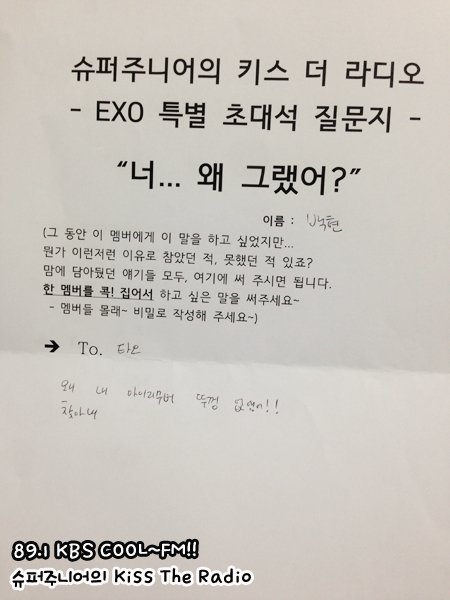 슈퍼주니어의 키스 더 라디오
- EXO 특별 초대석 질문지 -
“너... 왜 그랬어?”
이름 : 백현
(그 동안 이 멤버에게 이 말을 하고 싶었지만...
뭔가 이런저런 이유로 참았던 적, 못했던 적 있죠?
맘에 담아뒀던 얘기들 모두, 여기에 써 주시면 됩니다.
한 멤버를 콕! 집어서 하고 싶은 말을 써주세요~
- 멤버들 몰래~ 비밀로 작성해 주세요~)
➔ To. 타오
왜 내 아이리무버 뚜껑 없앴어!!
찾아내
89.1 KBS COOL~FM!!
슈퍼주니어의 Kiss The Radio